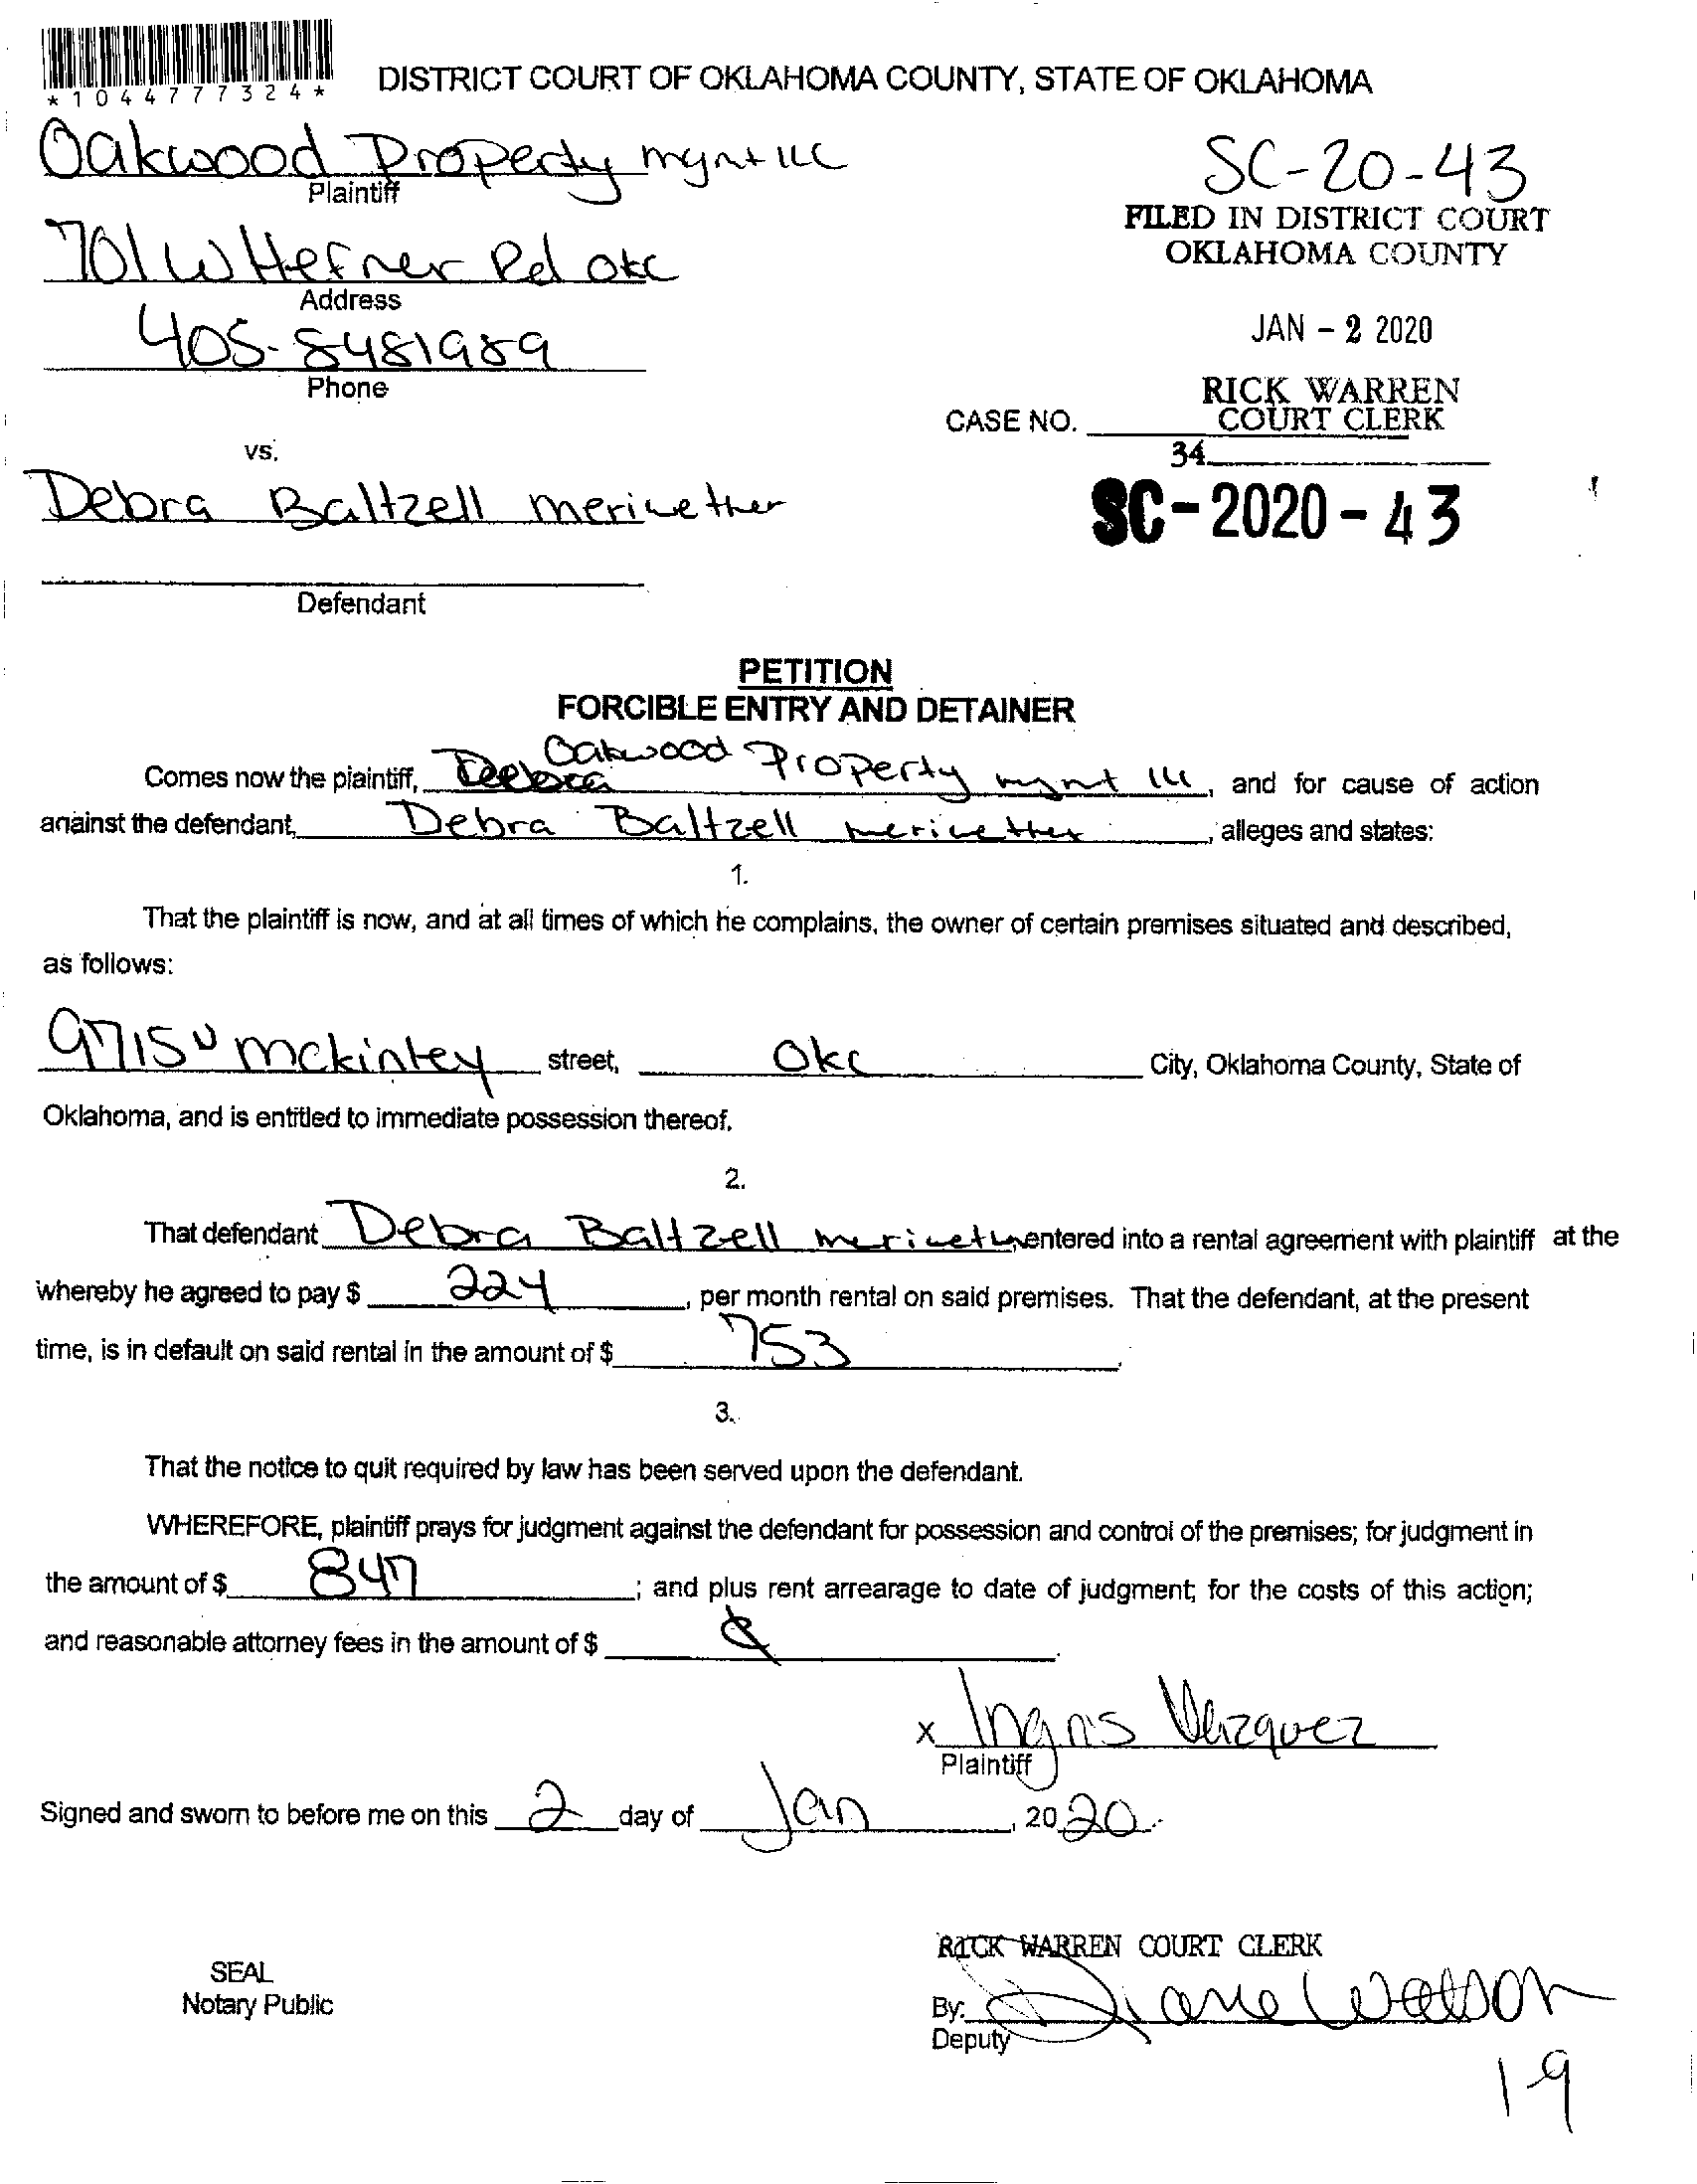 *1044777324*
DISTRICT COURT OF OKLAHOMA COUNTY, STATE OF OKLAHOMA
Oakwood Property mgnt llc
Plaintiff
SC-20-43
FILED IN DISTRICT COURT
OKLAHOMA COUNTY
701 W Hefner Rd okc
Address
JAN - 2 2020
405-8481989
Phone
RICK WARREN
COURT CLERK
CASE NO.
34
vs.
Debra Baltzell meriwether
SC-2020-43
Defendant
PETITION
FORCIBLE ENTRY AND DETAINER
Comes now the plaintiff, Oakwood Property mgnt llc, and for cause of action
against the defendant, Debra Baltzell meriwether, alleges and states:
1.
That the plaintiff is now, and at all times of which he complains, the owner of certain premises situated and described,
as follows:
9715 N mckinley street, Okc City, Oklahoma County, State of
Oklahoma, and is entitled to immediate possession thereof.
2.
That defendant Debra Baltzell meriweth entered into a rental agreement with plaintiff at the
whereby he agreed to pay $ 224, per month rental on said premises. That the defendant, at the present
time, is in default on said rental in the amount of $ 753
3.
That the notice to quit required by law has been served upon the defendant.
WHEREFORE, plaintiff prays for judgment against the defendant for possession and control of the premises; for judgment in
the amount of $ 847; and plus rent arrearage to date of judgment; for the costs of this action;
and reasonable attorney fees in the amount of $
x Ingris Vazquez
Plaintiff
Signed and sworn to before me on this 2 day of Jan, 2020.
RICK WARREN COURT CLERK
SEAL
Notary Public
By: Diane Watson
Deputy
19